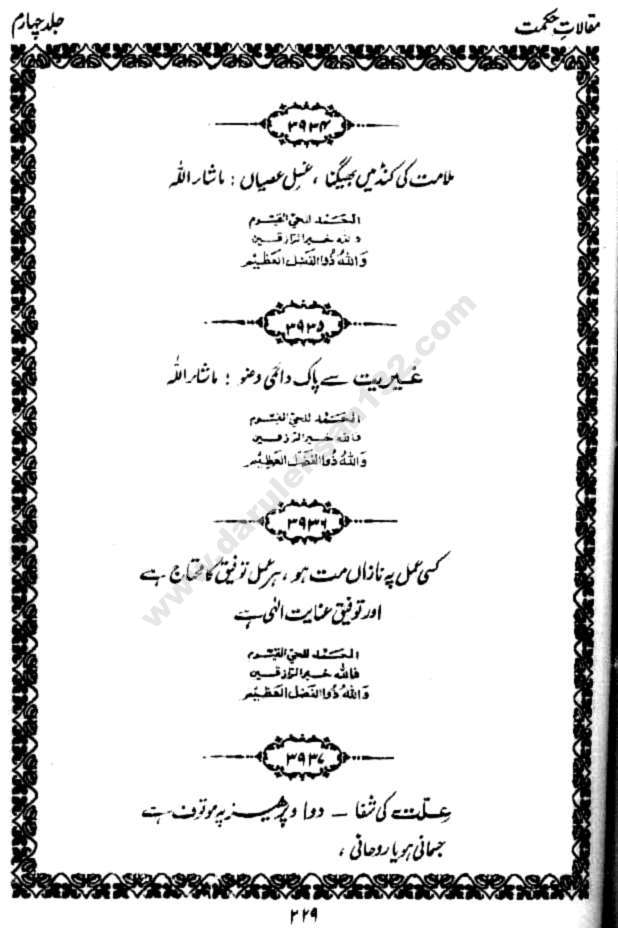 مقالاتِ حکمت
جلد چہارم
۳۹۳۴
ملامت کی کنڈ میں بھیگنا ، غسلِ عصیاں : ماشاراللہ
الحمد للحی القیوم
واللہ خیر الرازقین
وَاللہُ ذُوالفَضلِ العَظِیْم
۳۹۳۵
غیریت سے پاک دائمی وضو : ماشاراللہ
الحمد للحی القیوم
فاللہ خیر الرازقین
وَاللہُ ذُوالفَضلِ العَظِیْم
۳۹۳۶
کسی عمل پہ نازاں مت ہو ، ہر عمل توفیق کا محتاج ہے
اور توفیق عنایتِ الٰہی ہے
الحمد للحی القیوم
فاللہ خیر الرازقین
وَاللہُ ذُوالفَضلِ العَظِیْم
۳۹۳۷
عِلّت کی شفا — دوا و پرھیز پہ موقوف ہے
جسمانی ہو یا روحانی ،
۲۲۹
www.darulehsan192.com